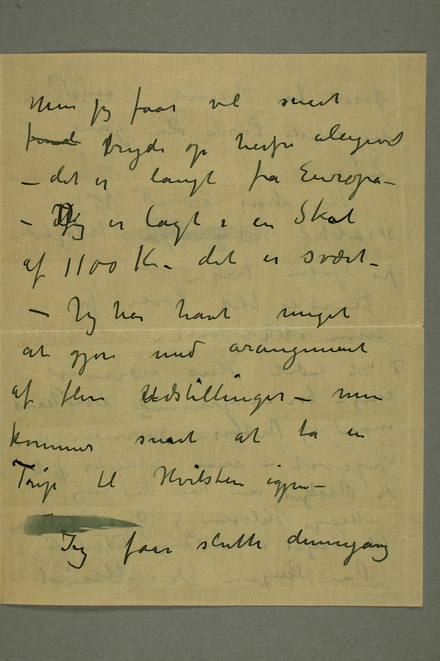 Men jeg faar vel snart
bryde op herfra alligevel
– det er langt fra Europa –
– Jeg er lagt i en Skat
af 1100 K – det er svært –
– Jeg har havt meget
at gjøre med arangement
af flere Udstillinger – men
kommer snart at ta en
Trip til Hvitsten igjen –
Jeg faar slutte dennegang